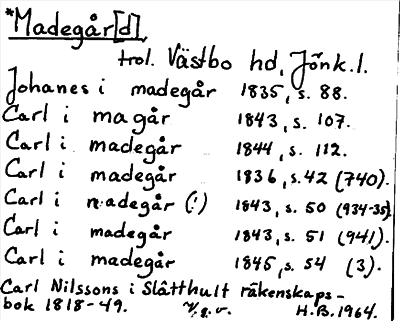 *Madegår[d],
trol. Västbo hd, Jönk.l.
Johanes i madegår 1835, s. 88.
Carl i magår 1843, s. 107.
Carl i madegår 1844, s. 112.
Carl i madegår 1836, s. 42 (740).
Carl i madegår (!) 1843, s. 50 (934-35).
Carl i madegår 1843, s. 51 (941).
Carl i madegår 1845, s. 54 (3).
Carl Nilssons i Slätthult räkenskaps-
bok 1818-49. H.B. 1964.